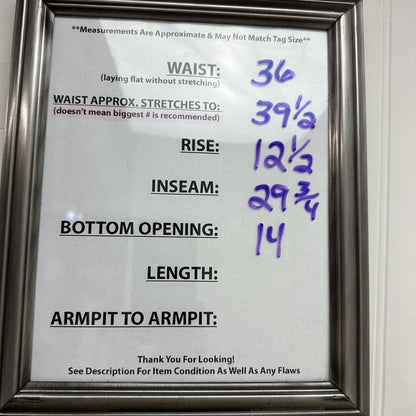 **Measurements Are Approximate & May Not Match Tag Size**
WAIST: 36
(laying flat without stretching)
WAIST APPROX. STRETCHES TO: 39 1/2
(doesn't mean biggest # is recommended)
RISE: 12 1/2
INSEAM: 29 3/4
BOTTOM OPENING: 14
LENGTH:
ARMPIT TO ARMPIT:
Thank You For Looking!
See Description For Item Condition As Well As Any Flaws